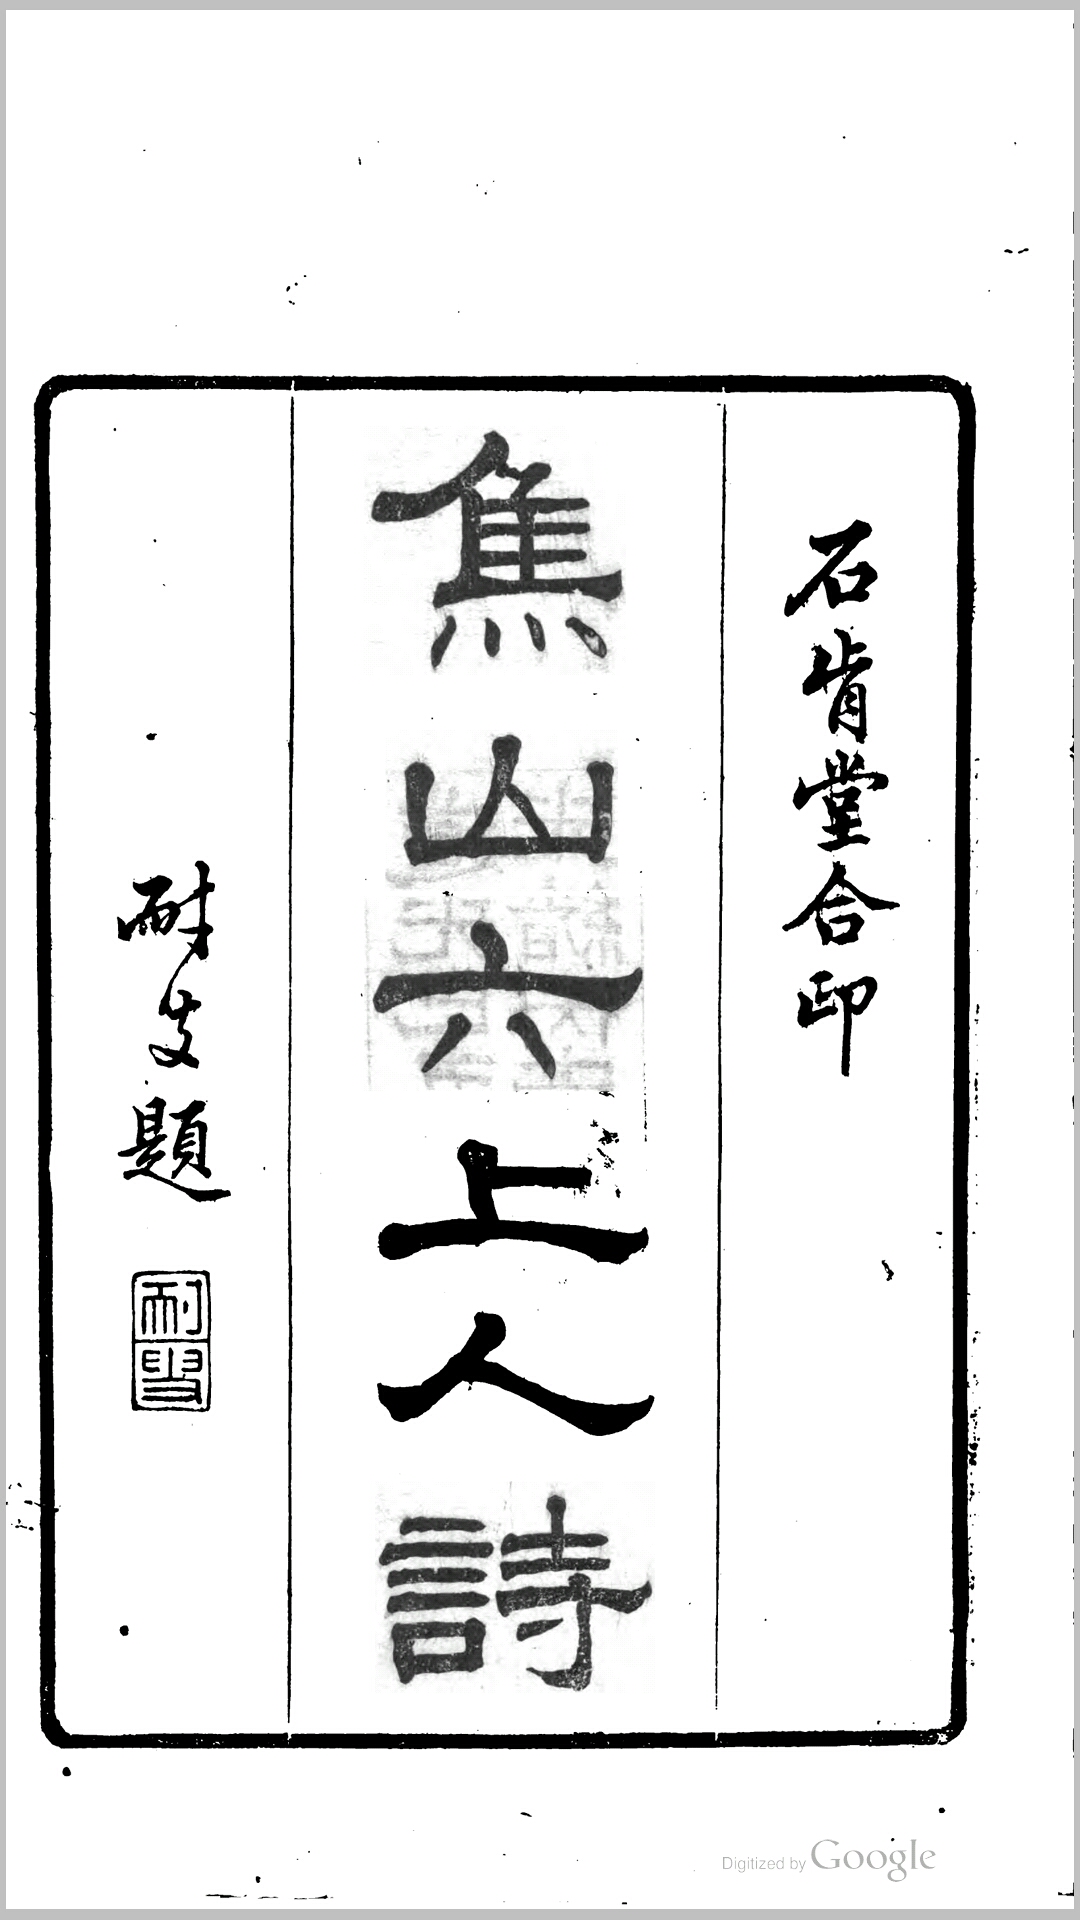 石肯堂合印
焦山六上人詩
耐叟題
耐叟
Digitized by Google